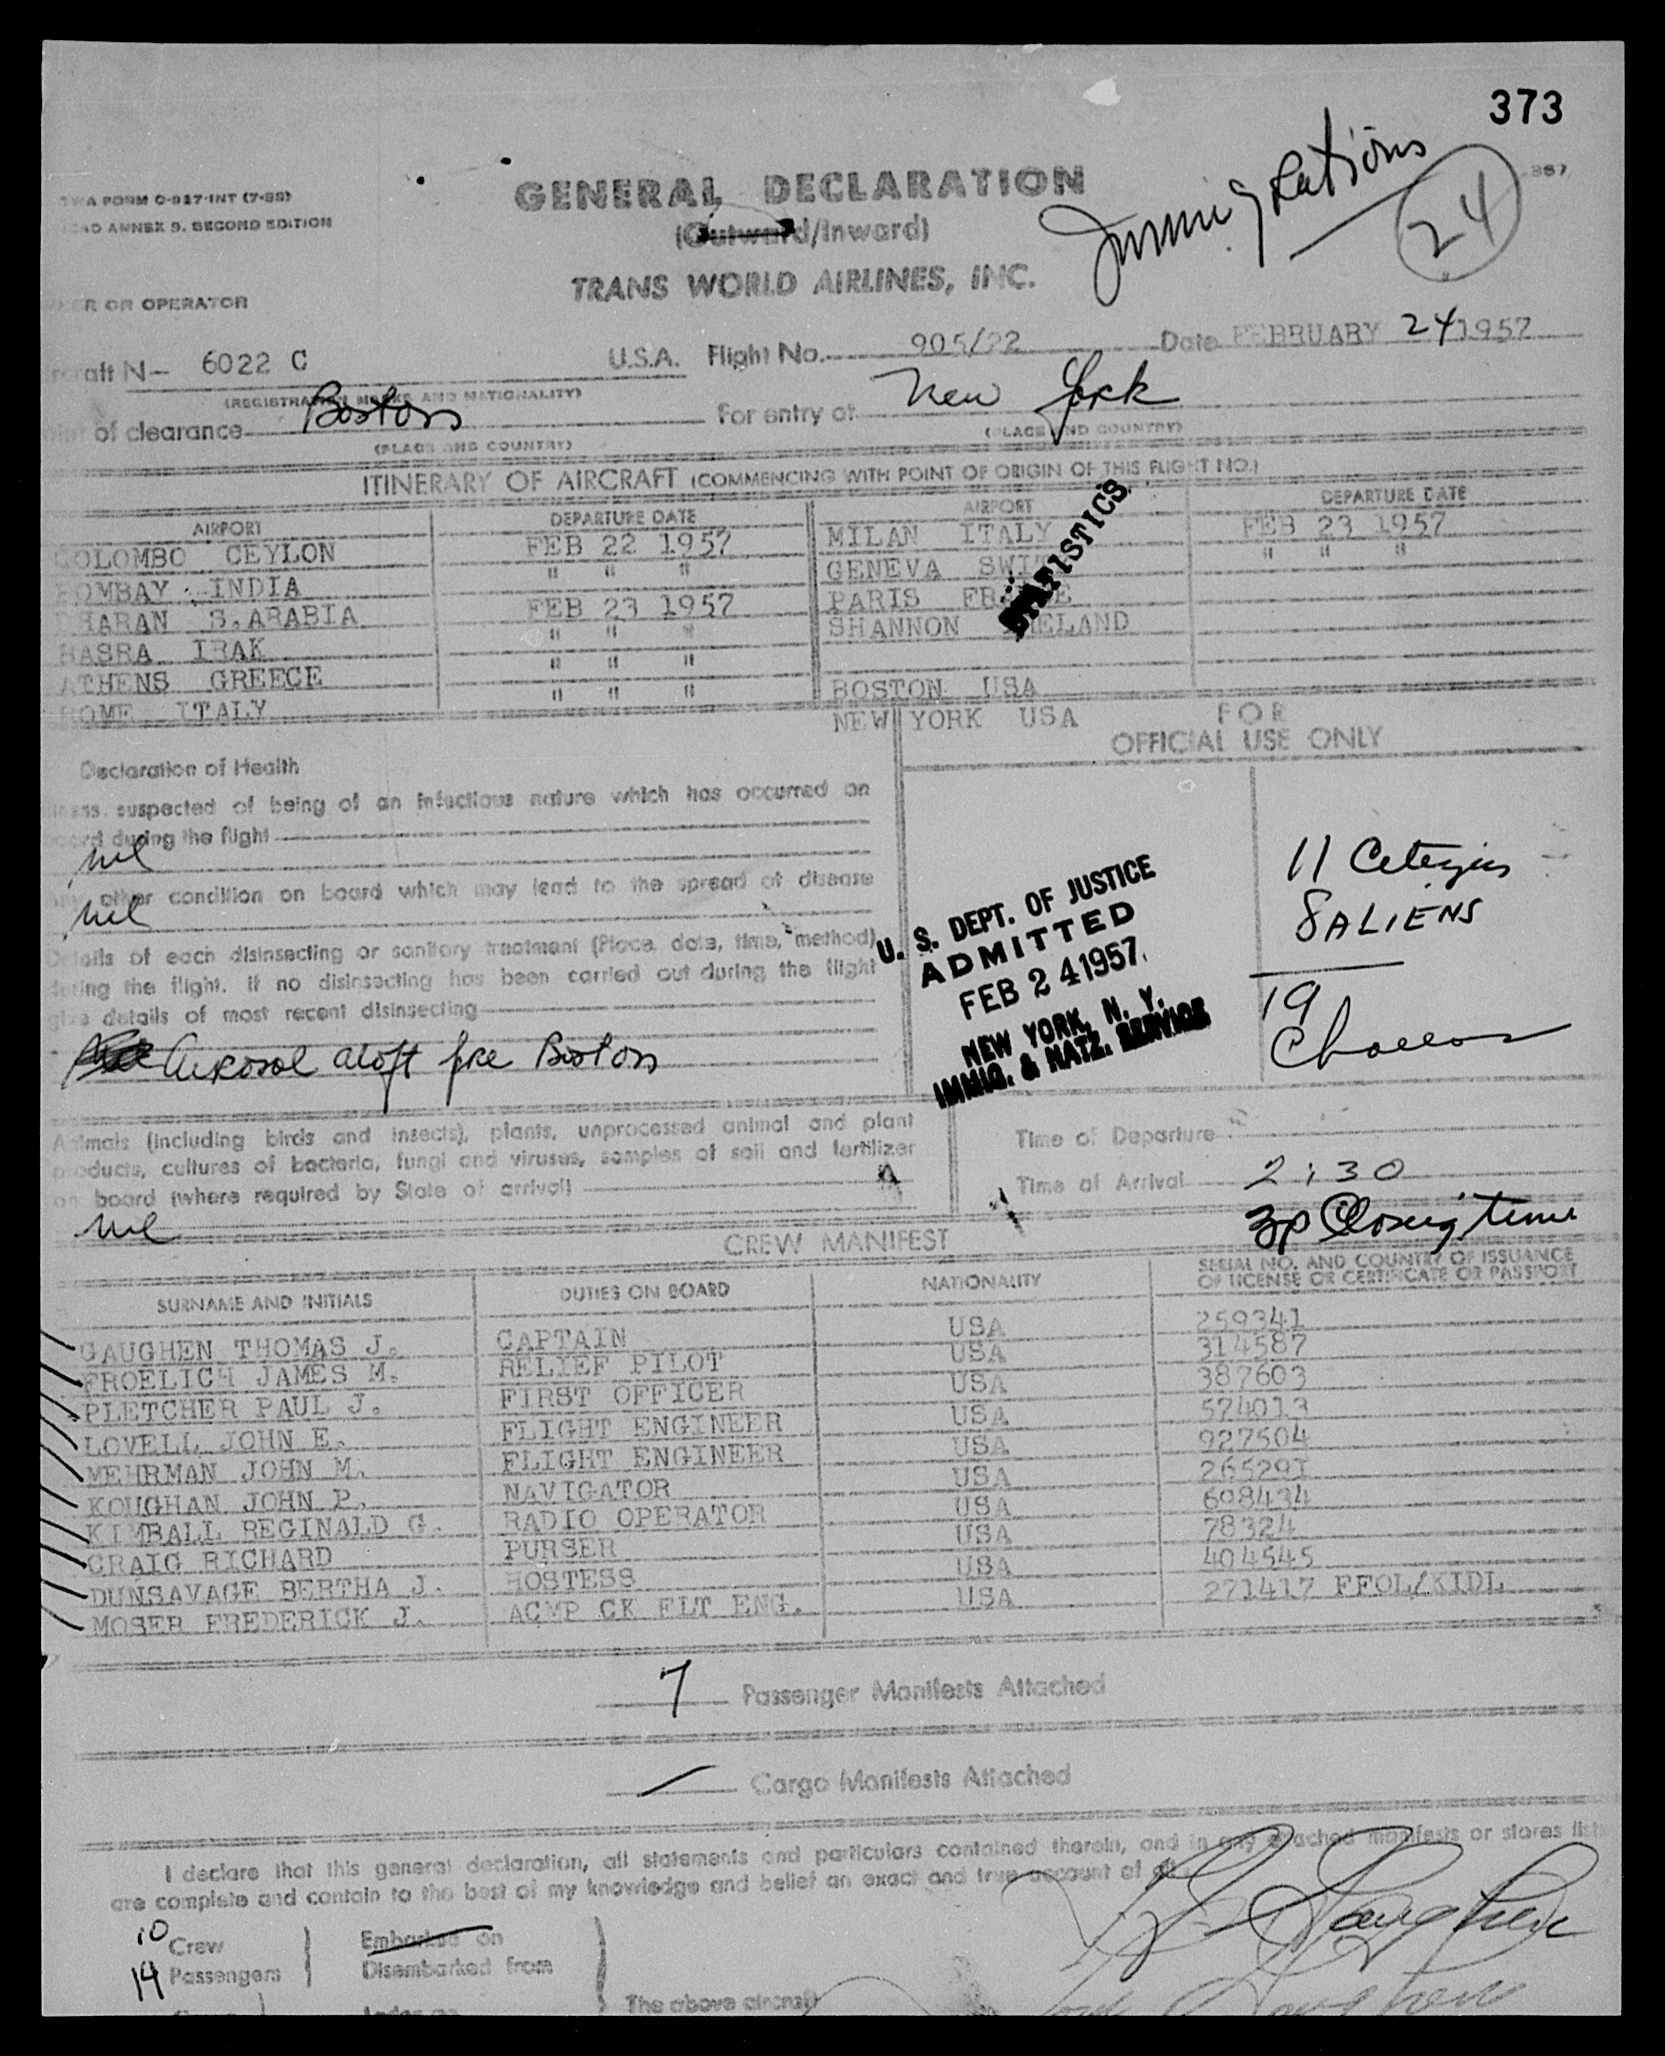 373
GENERAL DECLARATION
(Outward/Inward)
TRANS WORLD AIRLINES, INC.
24
TWA FORM O-927-INT (7-55)
ANNEX 9. SECOND EDITION
OR OPERATOR
N- 6022 C U.S.A. Flight No. 905/22 Date FEBRUARY 24 1957
(REGISTRATION MARKS AND NATIONALITY)
of clearance Boston For entry at New York
(PLACE AND COUNTRY) (PLACE AND COUNTRY)
ITINERARY OF AIRCRAFT (COMMENCING WITH POINT OF ORIGIN OF THIS FLIGHT NO.)
AIRPORT DEPARTURE DATE AIRPORT DEPARTURE DATE
COLOMBO CEYLON FEB 22 1957 MILAN ITALY FEB 23 1957
BOMBAY INDIA " " " GENEVA " " "
DHARAN S.ARABIA FEB 23 1957 PARIS FRANCE
BASRA IRAK " " " SHANNON IRELAND
ATHENS GREECE " " "
ROME ITALY " " " BOSTON USA
NEW YORK USA
STATISTICS
FOR
OFFICIAL USE ONLY
Declaration of Health
suspected of being of an infectious nature which has occurred on
during the flight
nil
other condition on board which may lead to the spread of disease
nil
Details of each disinsecting or sanitary treatment (Place, date, time, method)
during the flight. If no disinsecting has been carried out during the flight
give details of most recent disinsecting
Aerosol aloft pre Boston
U. S. DEPT. OF JUSTICE
ADMITTED
FEB 24 1957
NEW YORK, N. Y.
IMMIG. & NATZ. SERVICE
11 Citizens
8 ALIENS
19
Animals (including birds and insects), plants, unprocessed animal and plant
products, cultures of bacteria, fungi and viruses, samples of soil and fertilizer
on board (where required by State of arrival)
nil
Time of Departure
Time of Arrival 2:30
3p Closing time
CREW MANIFEST
SURNAME AND INITIALS DUTIES ON BOARD NATIONALITY SERIAL NO. AND COUNTRY OF ISSUANCE
OF LICENSE OR CERTIFICATE OR PASSPORT
GAUGHEN THOMAS J. CAPTAIN USA 259341
FROELICH JAMES M. RELIEF PILOT USA 314587
PLETCHER PAUL J. FIRST OFFICER USA 387603
LOVELL JOHN E. FLIGHT ENGINEER USA 574013
MEHRMAN JOHN M. FLIGHT ENGINEER USA 927504
KOUGHAN JOHN P. NAVIGATOR USA 265291
KIMBALL REGINALD G. RADIO OPERATOR USA 698434
CRAIG RICHARD PURSER USA 78324
DUNSAVAGE BERTHA J. HOSTESS USA 404545
MOSER FREDERICK J. ACMP CK FLT ENG. USA 271417 FFOL/KIDL
7 Passenger Manifests Attached
Cargo Manifests Attached
I declare that this general declaration, all statements and particulars contained therein, and in any attached manifests or stores
are complete and contain to the best of my knowledge and belief an exact and true account of all
10 Crew Embarked on
14 Passengers Disembarked from
The above aircraft